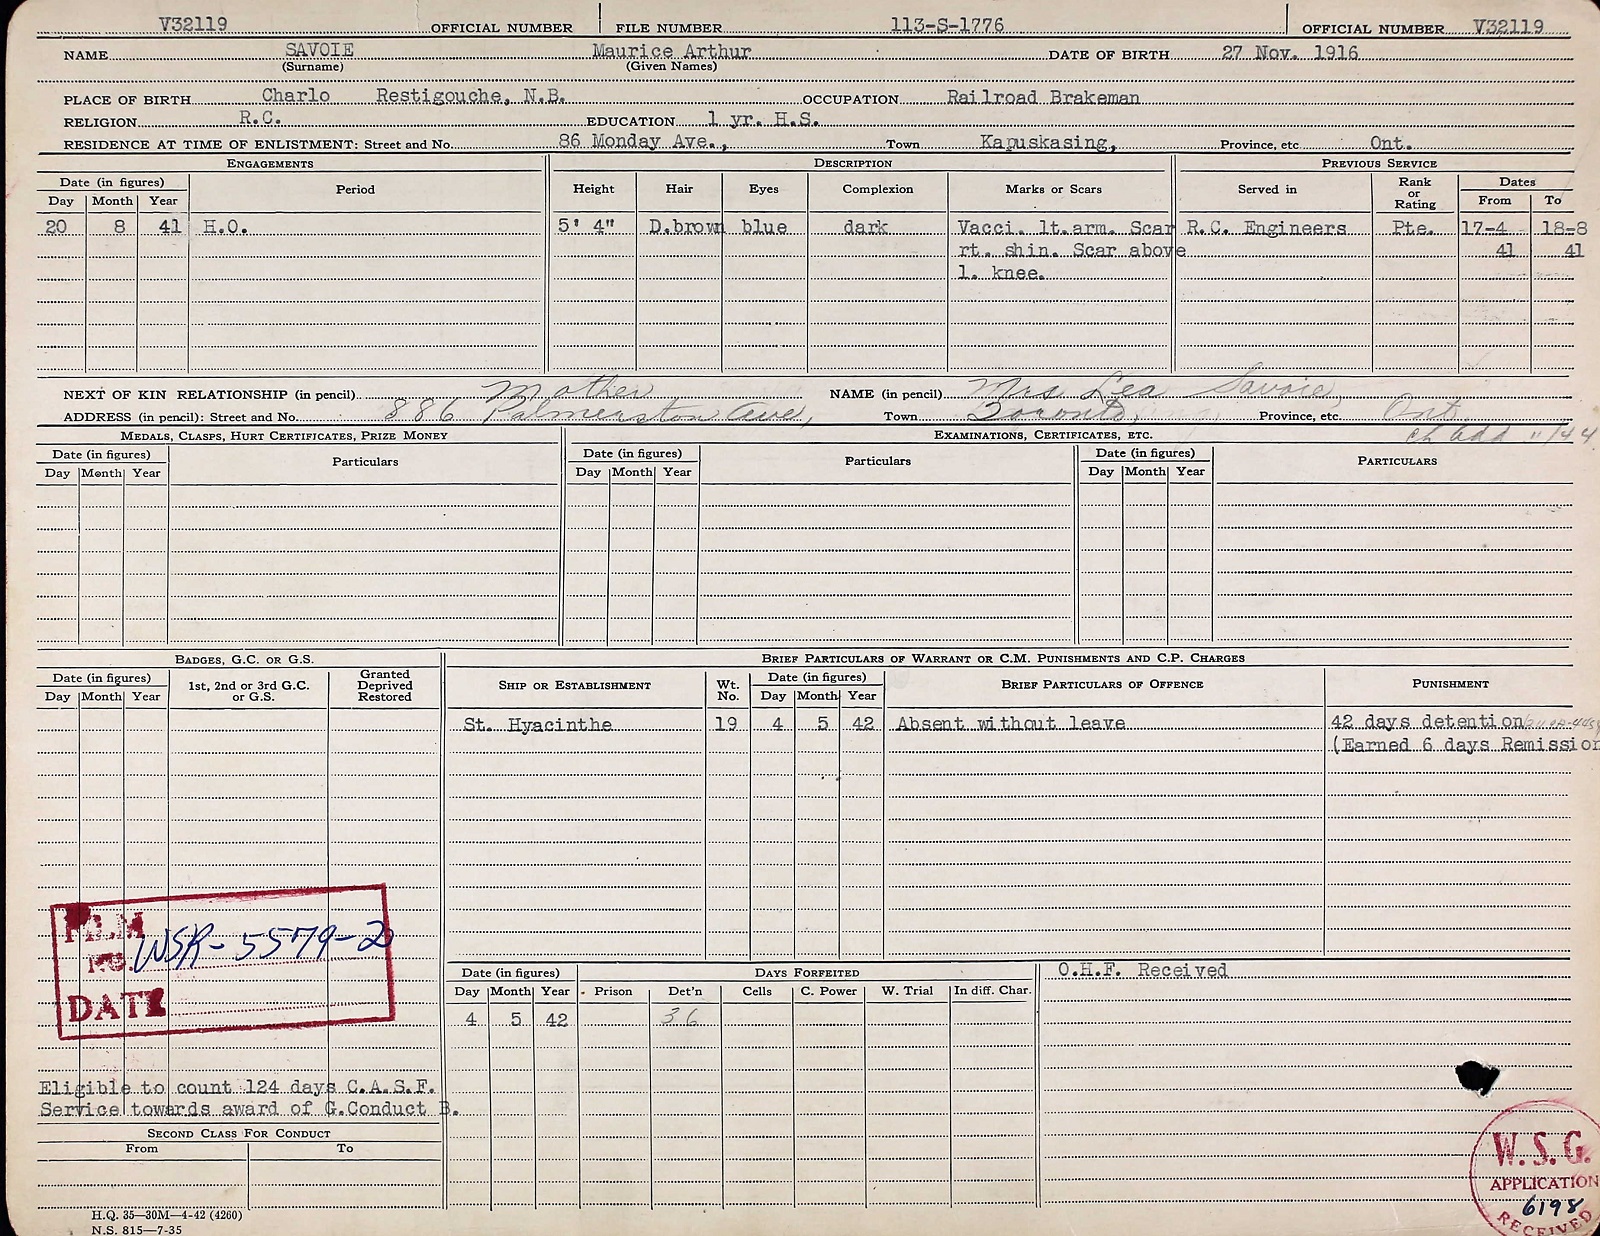 V32119 OFFICIAL NUMBER FILE NUMBER 113-S-1776 OFFICIAL NUMBER V32119
NAME SAVOIE Maurice Arthur DATE OF BIRTH 27 Nov. 1916
(Surname) (Given Names)
PLACE OF BIRTH Charlo Restigouche, N.B. OCCUPATION Railroad Brakeman
RELIGION R.C. EDUCATION 1 yr. H.S.
RESIDENCE AT TIME OF ENLISTMENT: Street and No. 86 Monday Ave., Town Kapuskasing, Province, etc Ont.
ENGAGEMENTS DESCRIPTION PREVIOUS SERVICE
Date (in figures) Period Height Hair Eyes Complexion Marks or Scars Served in Rank or Rating Dates
Day Month Year From To
20 8 41 H.O. 5' 4" D.brown blue dark Vacci. lt.arm. Scar R.C. Engineers Pte. 17-4 18-8
rt. shin. Scar above 41 41
l. knee.
NEXT OF KIN RELATIONSHIP (in pencil) Mother NAME (in pencil) Mrs Lea Savoie,
ADDRESS (in pencil): Street and No. 886 Palmerston Ave, Town Toronto, Province, etc. Ont
ch add 11/44
MEDALS, CLASPS, HURT CERTIFICATES, PRIZE MONEY EXAMINATIONS, CERTIFICATES, ETC.
Date (in figures) Particulars Date (in figures) Particulars Date (in figures) PARTICULARS
Day Month Year Day Month Year Day Month Year
BADGES, G.C. OR G.S. BRIEF PARTICULARS OF WARRANT OR C.M. PUNISHMENTS AND C.P. CHARGES
Date (in figures) 1st, 2nd or 3rd G.C. or G.S. Granted Deprived Restored SHIP OR ESTABLISHMENT Wt. No. Date (in figures) BRIEF PARTICULARS OF OFFENCE PUNISHMENT
Day Month Year Day Month Year
St. Hyacinthe 19 4 5 42 Absent without leave 42 days detention
(Earned 6 days Remission
FILM
NO. WSR-5579-2
DATE
Date (in figures) DAYS FORFEITED O.H.F. Received
Day Month Year Prison Det'n Cells C. Power W. Trial In diff. Char.
4 5 42 36
Eligible to count 124 days C.A.S.F.
Service towards award of G.Conduct B.
SECOND CLASS FOR CONDUCT
From To
W.S.G.
APPLICATION
6198
RECEIVED
H.Q. 35—30M—4-42 (4260)
N.S. 815—7-35